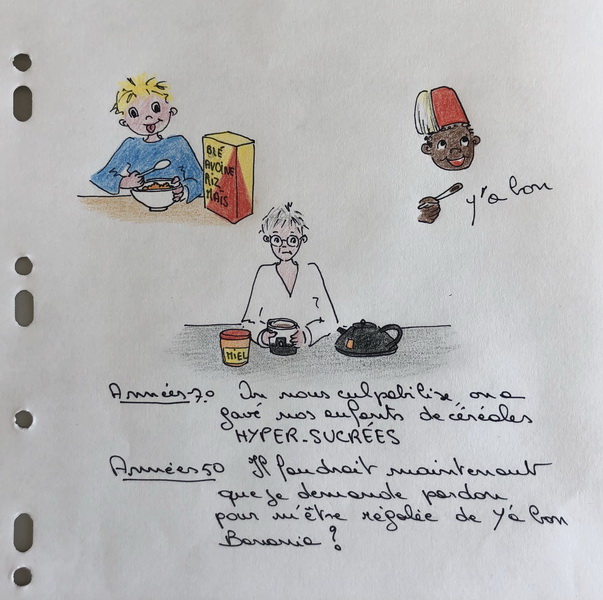 BLÉ
AVOINE
RIZ
MAÏS
y'a bon
MIEL
Années 70 On nous culpabilise, on a
gavé nos enfants de céréales
HYPER-SUCRÉES
Années 50 Il faudrait maintenant
que je demande pardon
pour m'être régalée de Y'a bon
Banania ?